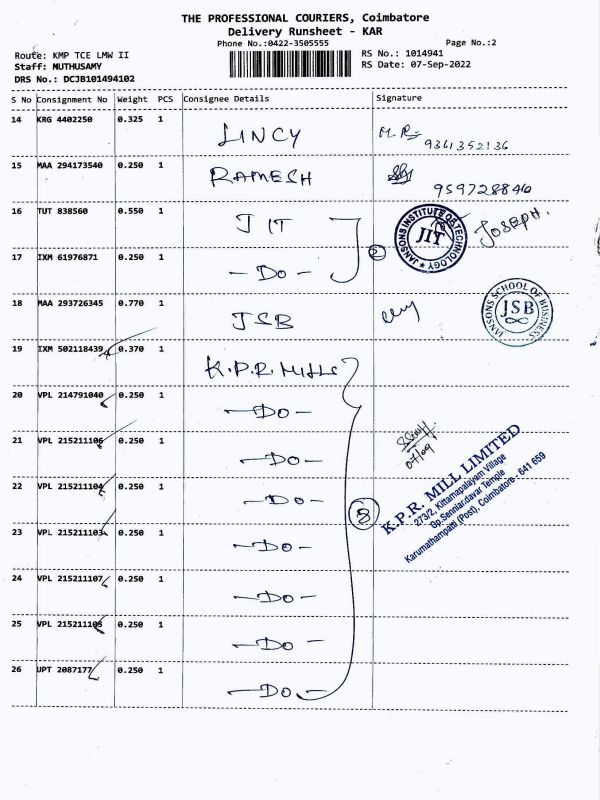 THE PROFESSIONAL COURIERS, Coimbatore
Delivery Runsheet - KAR
Phone No.:0422-3505555
Page No.:2
Route: KMP TCE LMW II
RS No.: 1014941
Staff: MUTHUSAMY
RS Date: 07-Sep-2022
DRS No.: DCJB101494102
S No Consignment No Weight PCS Consignee Details Signature
14 KRG 4402250 0.325 1 LINCY M.R 9361352136
15 MAA 294173540 0.250 1 RAMESH 9597288840
16 TUT 838560 0.550 1 JIT JOSEPH.
JANSONS INSTITUTE OF TECHNOLOGY
JIT
17 IXM 61976871 0.250 1 - Do - 2
18 MAA 293726345 0.770 1 JSB
JANSONS SCHOOL OF BUSINESS
JSB
19 IXM 502118439 0.370 1 K.P.R. MILLS
20 VPL 214791040 0.250 1 - Do -
21 VPL 215211106 0.250 1 - Do -
07/09
22 VPL 215211104 0.250 1 - Do - 8
K.P.R. MILL LIMITED
273/2, Kittampalayam Village
Op.Senniandavar Temple
Karumathampatti (Post), Coimbatore - 641 659
23 VPL 215211103 0.250 1 - Do -
24 VPL 215211107 0.250 1 - Do -
25 VPL 215211105 0.250 1 - Do -
26 UPT 2087177 0.250 1 - Do -